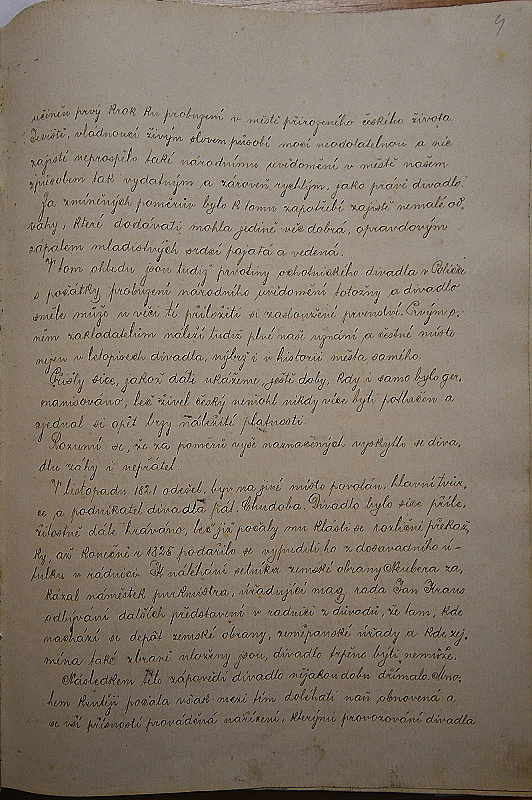 9
učiněn prvý krok ku probuzení v městě přirozeného českého života
Jeviště, vládnoucí živým slovem působí mocí neodolatelnou a nic
zajisté neprospělo také národnímu uvědomění v městě našem
způsobem tak vydatným a zároveň rychlým, jako právě divadlo.
Za zmíněných poměrův bylo k tomu zapotřebí zajisté nemalé od,
vahy, které dodávati mohla jedině věc dobrá, opravdovým
zápalem mladistvých srdcí pojatá a vedená.
V tom ohledu jsou tudíž prvotiny ochotnického divadla v Poličce
s počátky probuzení národního uvědomění totožny a divadlo
směle může u věci té přiložiti si zasloužené prvenství. Prvým o,
něm zakladatelům náleží tudíž plné naše uznání a čestné místo
nejen v letopisech divadla, nýbrž i v historii města samého.
Přišly sice, jakož dále ukážeme, ještě doby, kdy i samo bylo ger,
manisováno, leč živel český nemohl nikdy více býti potlačen a
zjednal si opět brzy náležité platnosti.
Rozumí se, že za poměrů výše naznačených vyskytlo se diva,
dlu záhy i nepřátel.
V listopadu 1821 odešel, byv na jiné místo povolán, hlavní tvůr,
ce a podnikatel divadla pát. Chudoba. Divadlo bylo sice příle,
žitostně dále hráváno, leč již počaly mu klásti se rozličné překáž,
ky, až konečně r. 1828 podařilo se vypuditi ho z dosavadního ú,
tulku v radnici. K naléhání setníka zemské obrany Skubera za,
kázal náměstek purkmistra, úřadující mag. rada Jan Kraus
odbývání dalších představení v radnici z důvodu, že tam, kde
nachází se depôt zemské obrany, zeměpanské úřady a kde zej,
ména také zbraně uloženy jsou, divadlo trpěno býti nemůže.
Následkem této zápovědi divadlo nějakou dobu dřímalo. Mno,
hem krutěji počala však mezi tím doléhati naň obnovená a
se vší přísností prováděná nařízení, kterými provozování divadla